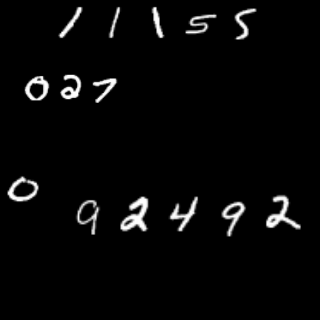 11155
027
0
92492